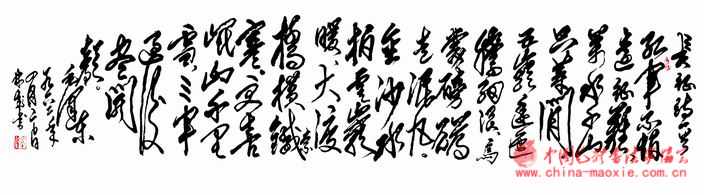 長征詩一首
紅軍不怕
遠征難
萬水千山
只等閑
五嶺逶迤
騰細浪烏
蒙磅礴
走泥丸
金沙水
拍雲崖
暖大渡
橋橫鐵索
寒更喜
岷山千里
雪三軍
過後
盡開
顏。
毛澤東
一九六二年
四月二十日
www.china-maoxie.com